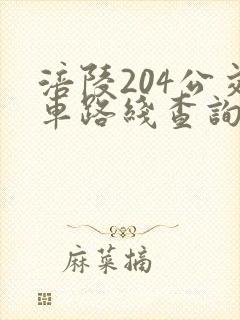 涪陵204公交
車路綫查詢
麻菜摘